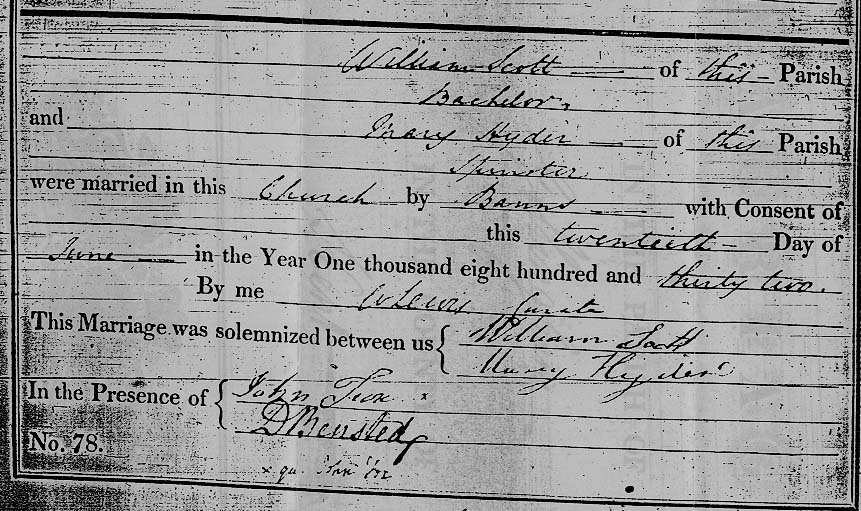 William Scott — of this — Parish
Bachelor,
and Mary Hyder — of this Parish
Spinster
were married in this Church by Banns — with Consent of
this twentieth — Day of
June — in the Year One thousand eight hundred and thirty two.
By me Lewis Curate
This Marriage was solemnized between us { William Scott
Mary Hyder
In the Presence of { John x
D Bensted
No. 78.
x qu. John